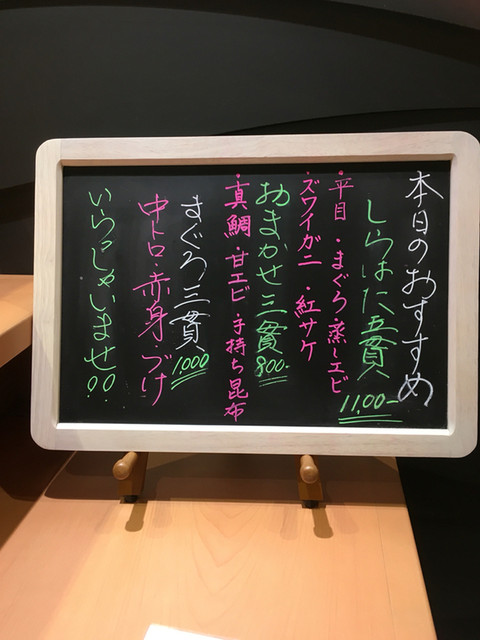 本日のおすすめ
しらはた五貫
1100-
・平目・まぐろ・蒸しエビ
ズワイガニ・紅サケ
おまかせ三貫
800-
・真鯛・甘エビ・子持ち昆布
まぐろ三貫
1000
中トロ・赤身・づけ
いらっしゃいませ!!